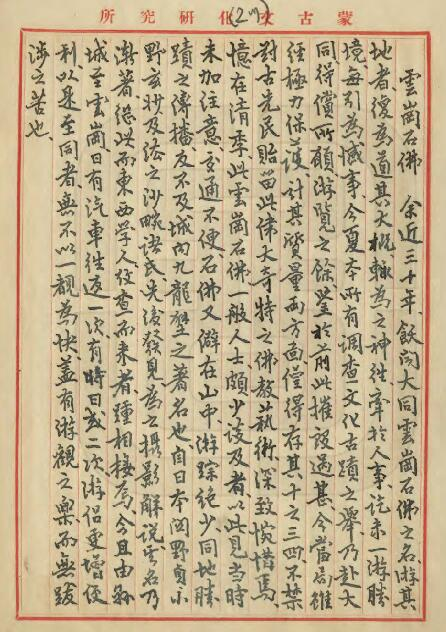 蒙古文化研究所
雲崗石佛 余近三十年飫聞大同雲崗石佛之名游其
地者復為道其大概輒為之神往牽於人事迄未一游勝
境每引為憾事今夏本所有調查文化古蹟之舉乃赴大
同得償所願游覽之餘鑒於前此摧毀過甚今當局雖
經極力保護計其質量兩方面僅得存其十之三四不禁
對古先民貽留此偉大奇特之佛教藝術深致惋惜焉
憶在清季此雲崗石佛一般人士頗少談及者以此見當時
未加注意交通不便石佛又僻在山中游踪絕少同地勝
蹟之傳播反不及城內九龍壁之著名也自日本岡野貞小
野玄妙及法之沙畹諸氏先後發見為之攝影解說雲名乃
漸著從此而東西學人考查而來者踵相接焉今且由縣
城至雲崗日有汽車往返一次有時日或二次游侶更增便
利以是至同者無不以一觀為快蓋有游觀之樂而無跋
涉之苦也